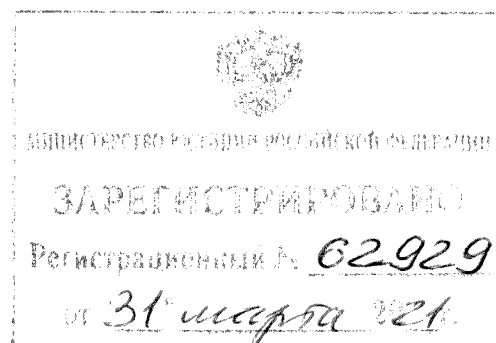 МИНИСТЕРСТВО ЮСТИЦИИ РОССИЙСКОЙ ФЕДЕРАЦИИ
ЗАРЕГИСТРИРОВАНО
Регистрационный № 62929
от "31" марта 2021г.